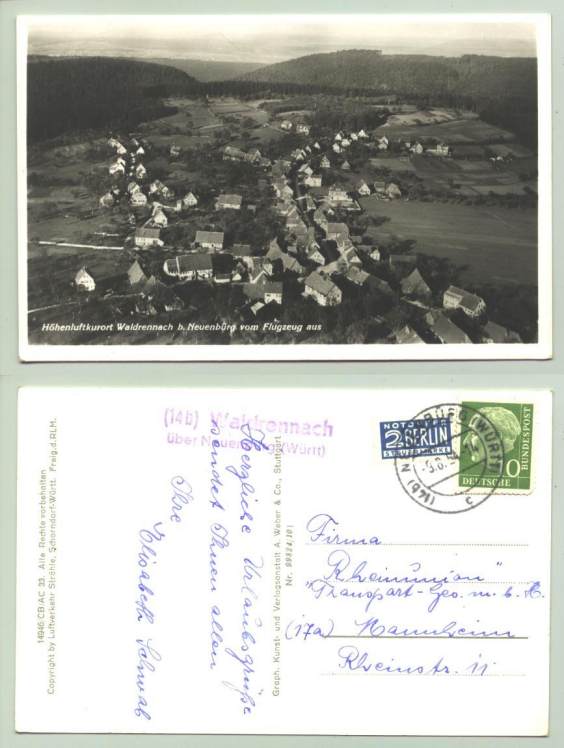 Höhenluftkurort Waldrennach b. Neuenbürg vom Flugzeug aus
14946/CB/AC 33. Alle Rechte vorbehalten
Copyright by Luftverkehr Strähle, Schorndorf-Württ. Freig. d. RLM.
(14b) Waldrennach
über Neuenbürg (Württ)
Herzliche Urlaubsgrüße
sendet Ihnen allen
Ihre
Elisabeth Schwab
Graph. Kunst- und Verlagsanstalt A. Weber & Co., Stuttgart
NOTOPFER
2 BERLIN
STEUERMARKE
(WÜRTT)
(14b)
c
10
DEUTSCHE
BUNDESPOST
Firma
"Rheinunion"
Transport-Ges. m. b. H.
(17a) Mannheim
Rheinstr. 11